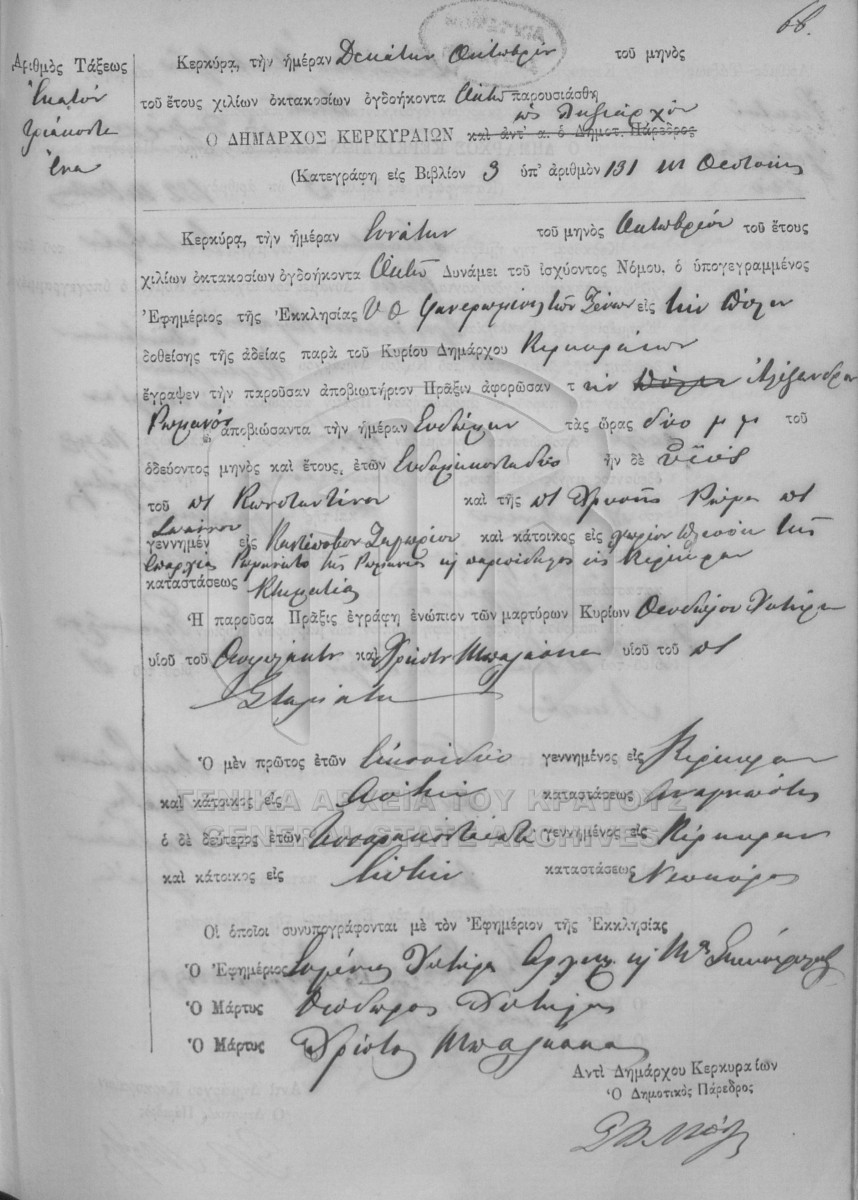 68.
Ἀριθμὸς Τάξεως
Ἑκατόν
τριάκοντα
ἕνα
Κερκύρᾳ, τὴν ἡμέραν Δεκάτην Ὀκτωβρίου τοῦ μηνὸς
τοῦ ἔτους χιλίων ὀκτακοσίων ὀγδοήκοντα Ὀκτὼ παρουσιάσθη
ὡς ληξίαρχον
Ὁ ΔΗΜΑΡΧΟΣ ΚΕΡΚΥΡΑΙΩΝ καὶ ἀντ' α. ὁ Δημοτ. Πάρεδρος
(Κατεγράφη εἰς Βιβλίον 3 ὑπ' ἀριθμὸν 131
Κερκύρᾳ, τὴν ἡμέραν Ἐνάτην τοῦ μηνὸς Ὀκτωβρίου τοῦ ἔτους
χιλίων ὀκτακοσίων ὀγδοήκοντα Ὀκτὼ Δυνάμει τοῦ ἰσχύοντος Νόμου, ὁ ὑπογεγραμμένος
Ἐφημέριος τῆς Ἐκκλησίας Υ Θ Φανερωμένης τῶν Ξένων εἰς τὴν Πόλιν
δοθείσης τῆς ἀδείας παρὰ τοῦ Κυρίου Δημάρχου Κερκυραίων
ἔγραψεν τὴν παροῦσαν ἀποβιωτήριον Πρᾶξιν ἀφορῶσαν τ ὸν Ἀλέξανδρον
Ρωμανός ἀποβιώσαντα τὴν ἡμέραν Ἑβδόμην τὰς ὥρας δύο μ μ τοῦ
ὁδεύοντος μηνὸς καὶ ἔτους, ἐτῶν Ἑβδομήκοντα δύο ἦν δὲ υἱός
τοῦ πτ Κωνσταντίνου καὶ τῆς πτ Χρυσῆς Ρώμα πτ
Ἰωάννου
γεννημέν εἰς Ζαγορίου καὶ κάτοικος εἰς χωρίον τῆς
Ἐπαρχίας τῆς Ρωμανίας κ παρεπίδημος εἰς Κέρκυραν
καταστάσεως Κτηματίας
Ἡ παροῦσα Πρᾶξις ἐγράφη ἐνώπιον τῶν μαρτύρων Κυρίων Θεοδώρου Χυτήρη
υἱοῦ τοῦ Θεοφυλάκτου καὶ Χρήστου Μπαλάσκα υἱοῦ τοῦ πτ
Σταμάτη
Ὁ μὲν πρῶτος ἐτῶν Εἰκοσιδύο γεννημένος εἰς Κέρκυραν
καὶ κάτοικος εἰς Αὐτήν καταστάσεως Ἀναγνώστης
ὁ δὲ δεύτερος ἐτῶν γεννημένος εἰς Κέρκυραν
καὶ κάτοικος εἰς Αὐτήν καταστάσεως Νεωκόρος
Οἱ ὁποῖοι συνυπογράφονται μὲ τὸν Ἐφημέριον τῆς Ἐκκλησίας
Ὁ Ἐφημέριος Χυτήρης
Ὁ Μάρτυς Θεόδωρος Χυτήρης
Ὁ Μάρτυς Χρῖστος Μπαλάσκας
Ἀντὶ Δημάρχου Κερκυραίων
Ὁ Δημοτικὸς Πάρεδρος
ΓΕΝΙΚΑ ΑΡΧΕΙΑ ΤΟΥ ΚΡΑΤΟΥΣ
GENERAL STATE ARCHIVES